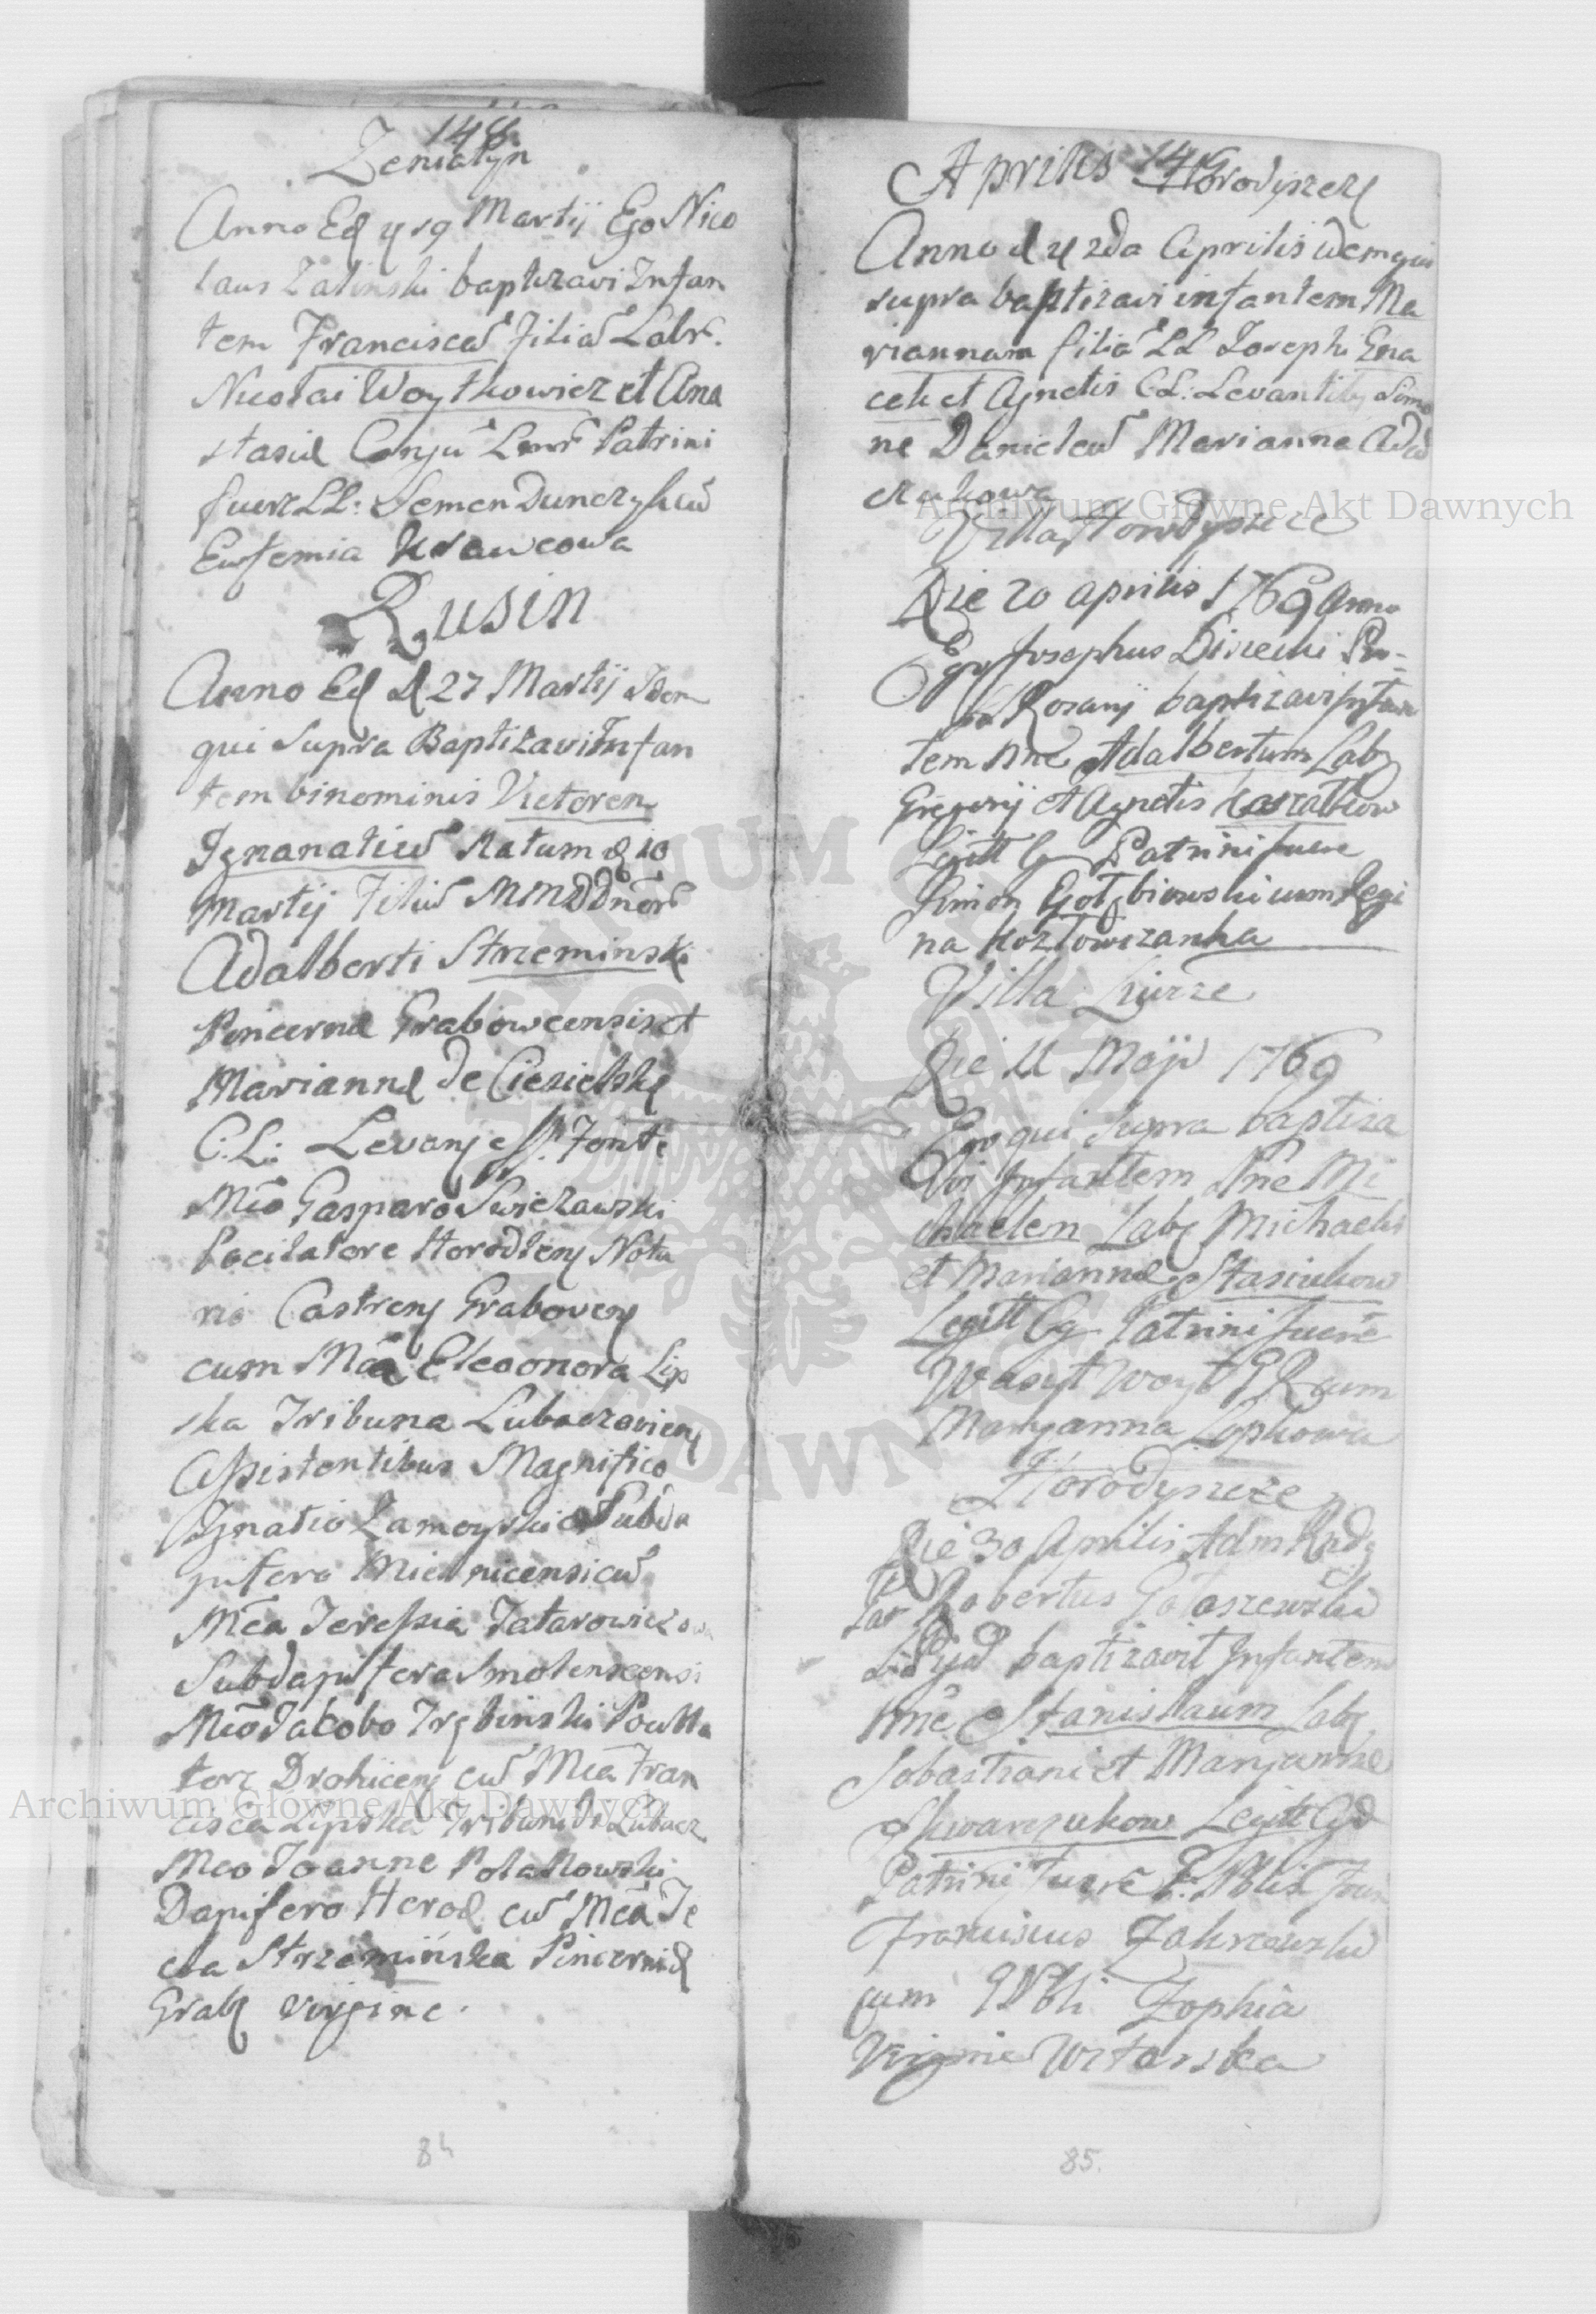 148
Zeniatyn
Anno Eđ 19 Martij Ego Nico
laus Zalinski baptizavi Infan
tem Franciscam Filiam Labr.
Nicolai Woytkowicz et Ana
stasiæ Conju Patrini
fuere LL: Semen Dunczyk cum
Eufemia Krawcowa
Rusin
Anno Ed D 27 Martij Idem
qui Supra Baptizavi Infan
tem binominis Victorem
Ignanatium Natum d 10
Martij Filium MMDDnor
Adalberti Strzeminski
Pincernæ Grabowcensis et
Mariannæ de Ciesielskę
C: L: Levan e S. Fonte
Mco Gasparo Swiezawski
Pocilatore Horodlen Nota
rio Castren Graboven
cum Mca Eleoonora Lip
ska Tribuna Lubaczovien
Assistentibus Magnifico
Ignatio Zamoyski Subda
pifero Mielnicensi cum
Mca Teressia Tatarowiczowa
Subdapifera Smolenscensi
Mco Jacobo Trębinski Pocilla
tore Drohicen cum Mca Fran
cisca Lipska Tribunide Lubacz
Mco Joanne Polanowski
Dapifero Horod cum Mca Te
cla Strzemińska Pincernid
Grab virgine.
84
Aprilis 149 Horodyszczę
Anno d 2da Aprilis idem qui
supra baptizavi infantem Ma
riannam filiam LL Josephi Ena
cek et Agnetis C.L: Levantib Simo
ne Daniel cum Marianna Adam
czukowa
Villa Horodyszcze
Die 20 aprilis 1769 Anno
Ego Josephus Pro-
Rosarij baptizavi Infan
tem nne Adalbertum Lab
Gregorij et Agnetis
Legitt Patrini fuere
Simon Gołębiowski cum Regi
na Kozłowczanka
Villa
Die 11 Maji 1769
Ego qui Supra baptiza
vi Infantem Nne Mi
chaelem Lab Michaelis
et Mariannæ Stasiukow
Legitt Cg Patrini fuere
Wasyl Woyt cum
Maryanna
Horodyszcze
Die 30 Aprilis Adm Rnd
Robertus
baptizavit Infantem
nne Stanislaum Lab
Sobastiani et Maryannæ
Legitt
Patrini fuere
Franciscus Zakrzewski
cum Zophia
Virgine
85.
Archiwum Główne Akt Dawnych
Archiwum Główne Akt Dawnych